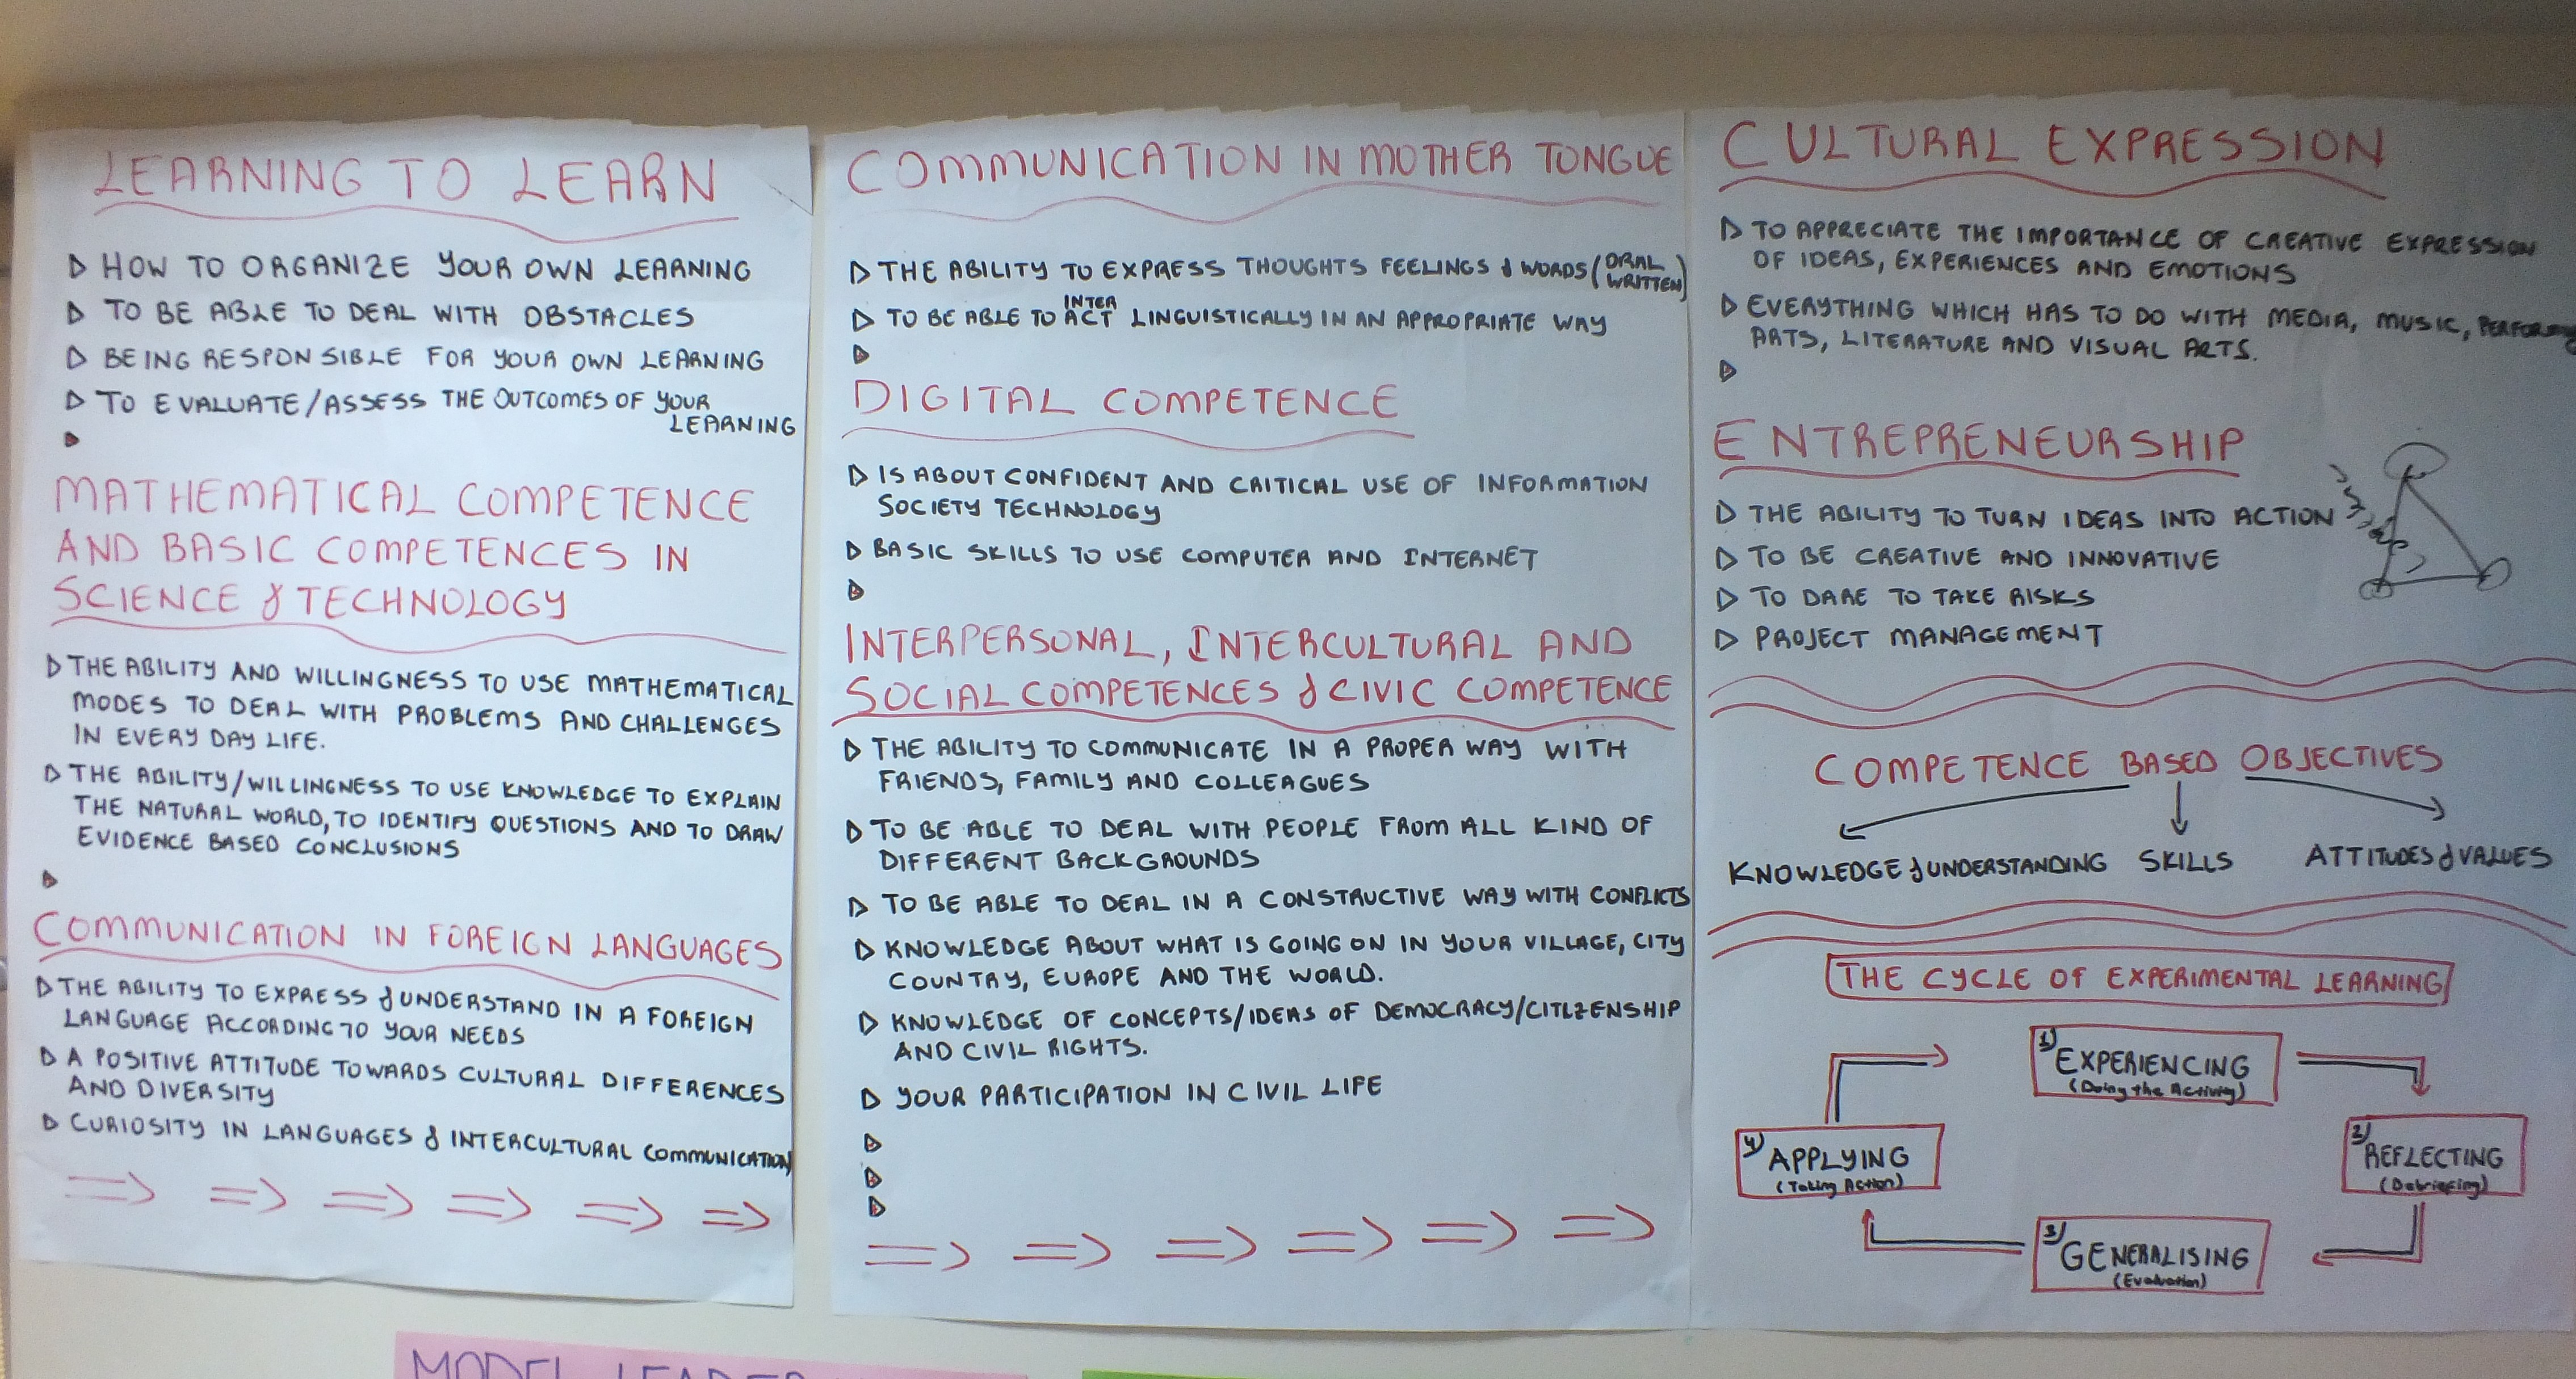 LEARNING TO LEARN
HOW TO ORGANIZE YOUR OWN LEARNING
TO BE ABLE TO DEAL WITH OBSTACLES
BEING RESPONSIBLE FOR YOUR OWN LEARNING
TO EVALUATE/ASSESS THE OUTCOMES OF YOUR
LEARNING
MATHEMATICAL COMPETENCE
AND BASIC COMPETENCES IN
SCIENCE & TECHNOLOGY
THE ABILITY AND WILLINGNESS TO USE MATHEMATICAL
MODES TO DEAL WITH PROBLEMS AND CHALLENGES
IN EVERY DAY LIFE.
THE ABILITY/WILLINGNESS TO USE KNOWLEDGE TO EXPLAIN
THE NATURAL WORLD, TO IDENTIFY QUESTIONS AND TO DRAW
EVIDENCE BASED CONCLUSIONS
COMMUNICATION IN FOREIGN LANGUAGES
THE ABILITY TO EXPRESS & UNDERSTAND IN A FOREIGN
LANGUAGE ACCORDING TO YOUR NEEDS
A POSITIVE ATTITUDE TOWARDS CULTURAL DIFFERENCES
AND DIVERSITY
CURIOSITY IN LANGUAGES & INTERCULTURAL COMMUNICATION
COMMUNICATION IN MOTHER TONGUE
THE ABILITY TO EXPRESS THOUGHTS FEELINGS & WORDS (ORAL
WRITTEN)
INTER
TO BE ABLE TO ACT LINGUISTICALLY IN AN APPROPRIATE WAY
DIGITAL COMPETENCE
IS ABOUT CONFIDENT AND CRITICAL USE OF INFORMATION
SOCIETY TECHNOLOGY
BASIC SKILLS TO USE COMPUTER AND INTERNET
INTERPERSONAL, INTERCULTURAL AND
SOCIAL COMPETENCES & CIVIC COMPETENCE
THE ABILITY TO COMMUNICATE IN A PROPER WAY WITH
FRIENDS, FAMILY AND COLLEAGUES
TO BE ABLE TO DEAL WITH PEOPLE FROM ALL KIND OF
DIFFERENT BACKGROUNDS
TO BE ABLE TO DEAL IN A CONSTRUCTIVE WAY WITH CONFLICTS
KNOWLEDGE ABOUT WHAT IS GOING ON IN YOUR VILLAGE, CITY
COUNTRY, EUROPE AND THE WORLD.
KNOWLEDGE OF CONCEPTS/IDEAS OF DEMOCRACY/CITIZENSHIP
AND CIVIL RIGHTS.
YOUR PARTICIPATION IN CIVIL LIFE
CULTURAL EXPRESSION
TO APPRECIATE THE IMPORTANCE OF CREATIVE EXPRESSION
OF IDEAS, EXPERIENCES AND EMOTIONS
EVERYTHING WHICH HAS TO DO WITH MEDIA, MUSIC, PERFORMING
ARTS, LITERATURE AND VISUAL ARTS.
ENTREPRENEURSHIP
THE ABILITY TO TURN IDEAS INTO ACTION
TO BE CREATIVE AND INNOVATIVE
TO DARE TO TAKE RISKS
PROJECT MANAGEMENT
COMPETENCE BASED OBJECTIVES
KNOWLEDGE & UNDERSTANDING SKILLS ATTITUDES & VALUES
THE CYCLE OF EXPERIMENTAL LEARNING
1) EXPERIENCING
(Doing the Activity)
2) REFLECTING
(Debriefing)
3) GENERALISING
(Evaluation)
4) APPLYING
(Taking Action)
MODEL LEADER